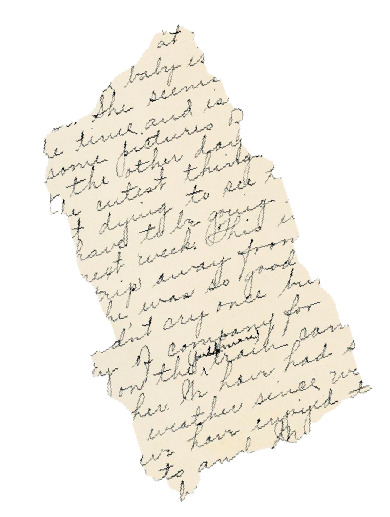 at
baby is
She seems
e time and is
some pictures
the other day
e cutest thing
t dying to see
have to be going
next week. This
rip away from
he was so good
dn't cry once
of company for
Pullman
on the train
her. We have had s
weather since we
we have enjoyed
to and